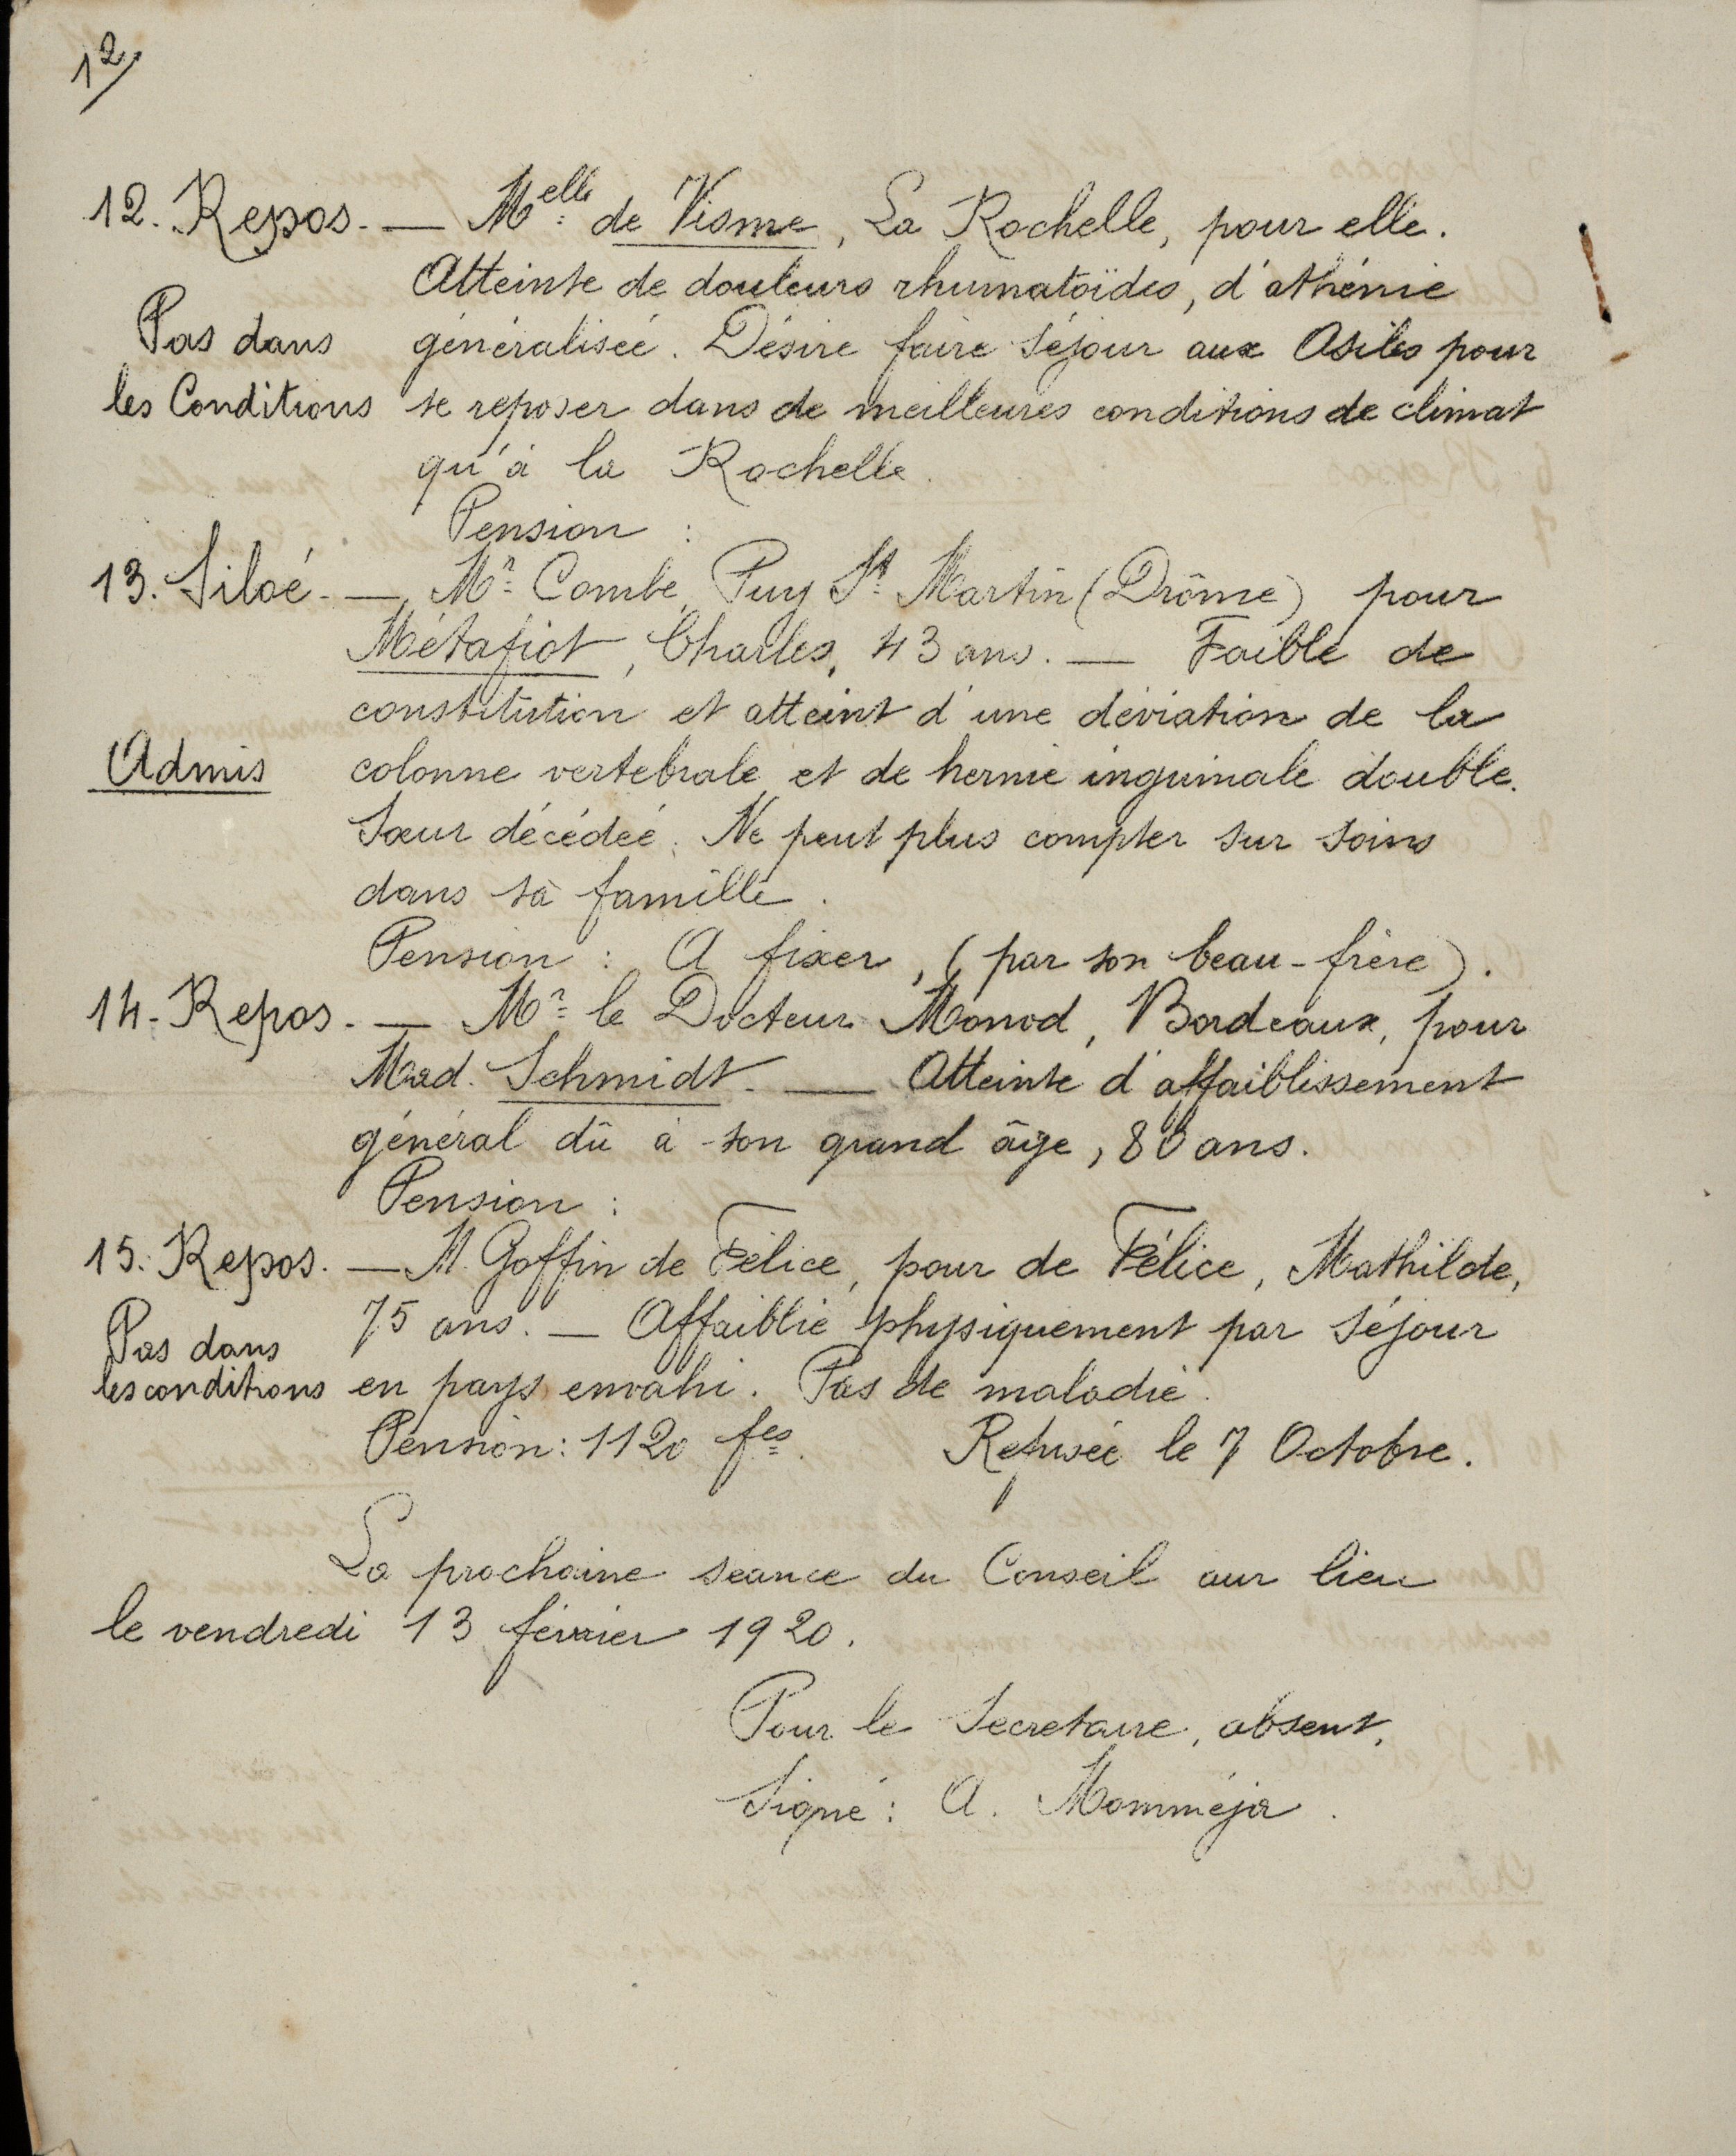 12/
12. Repos. — Melle de Visme, La Rochelle, pour elle.
Atteinte de douleurs rhumatoïdes, d'athénie
Pas dans généralisée. Désire faire séjour aux Asiles pour
les Conditions se reposer dans de meilleures conditions de climat
qu'à la Rochelle.
Pension :
13. Siloé. — Mr Combe, Puy St Martin (Drôme) pour
Métafiot, Charles, 43 ans. — Faible de
constitution et atteint d'une déviation de la
Admis colonne vertebrale et de hernie inguinale double.
Soeur décédée. Ne peut plus compter sur soins
dans sa famille.
Pension : A fixer, (par son beau-frère).
14. Repos. — Mr le Docteur Monod, Bordeaux, pour
Mad. Schmidt. — Atteinte d'affaiblissement
général dû à son grand âge, 80 ans.
Pension :
15. Repos. — M. Goffin de Félice, pour de Félice, Mathilde,
75 ans. — Affaiblie physiquement par séjour
Pas dans
les conditions en pays envahi. Pas de maladie.
Pension : 1120 fcs. Refusée le 7 Octobre.
La prochaine séance du Conseil aur lieu
le vendredi 13 février 1920.
Pour le Secretaire, absent,
Signé : A. Momméja.